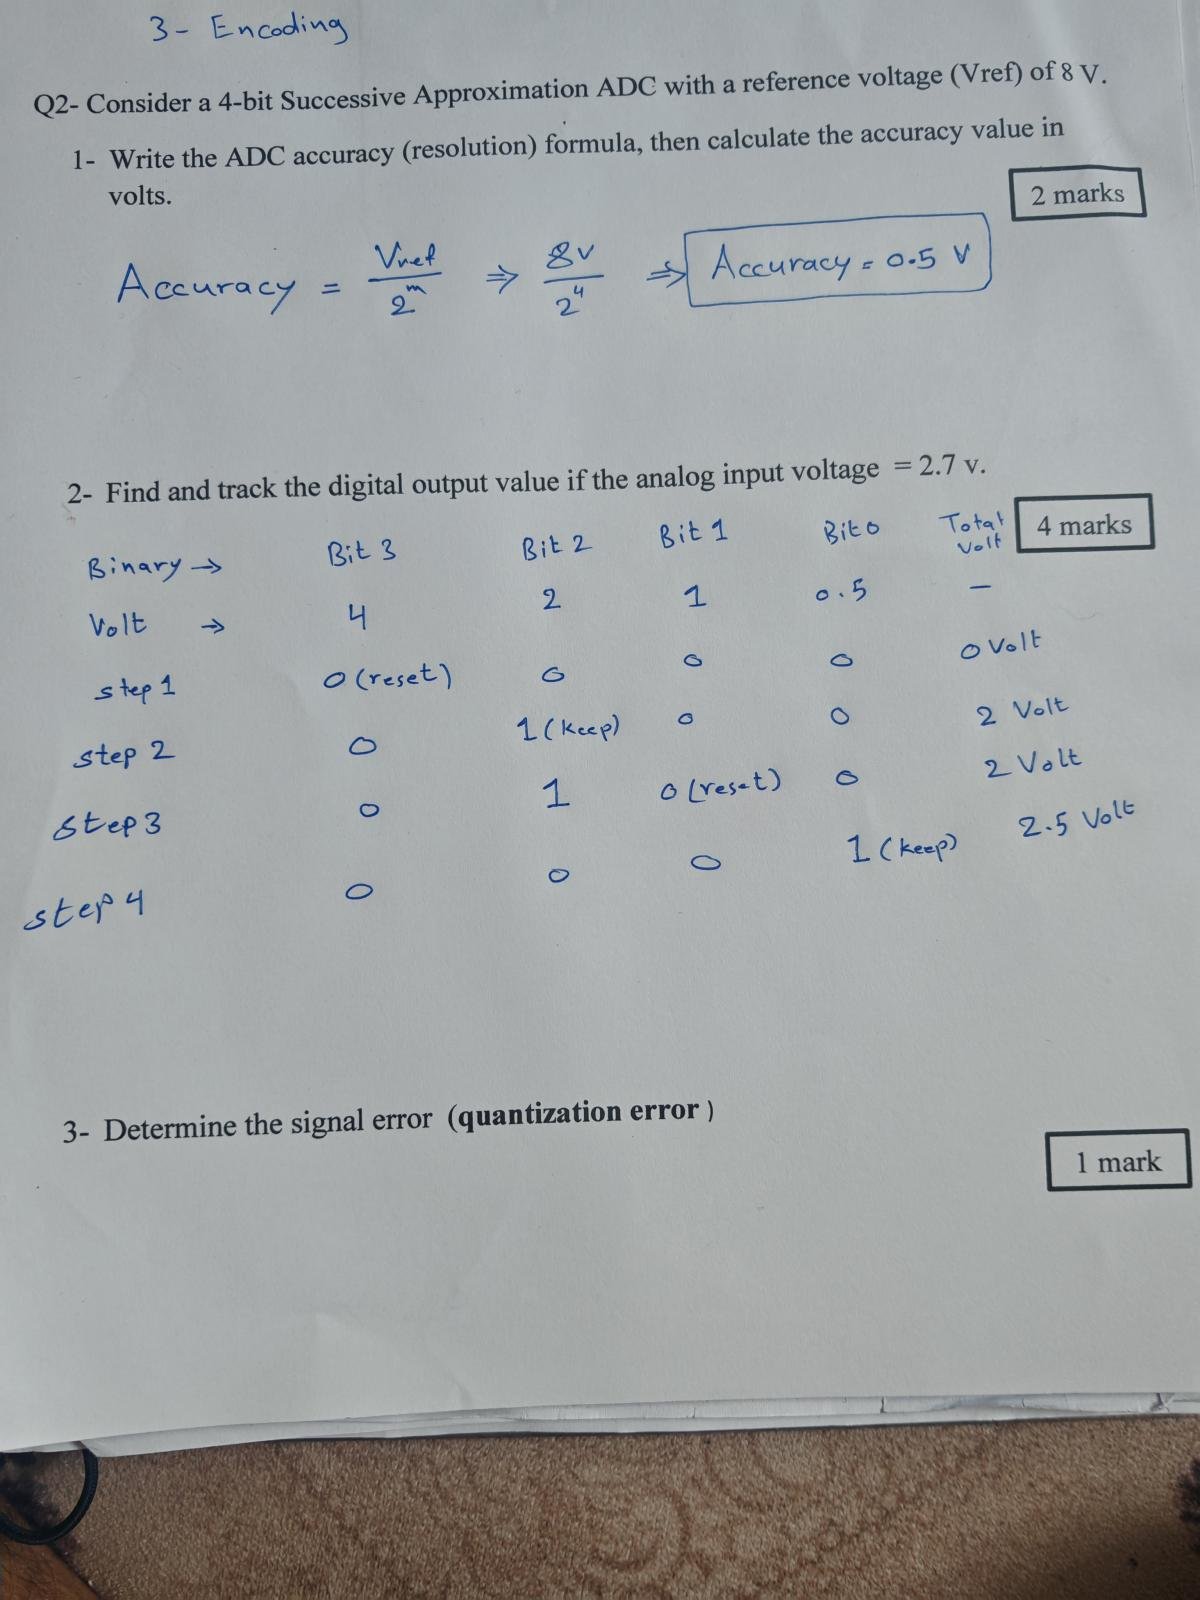 3- Encoding
Q2- Consider a 4-bit Successive Approximation ADC with a reference voltage (Vref) of 8 V.
1- Write the ADC accuracy (resolution) formula, then calculate the accuracy value in
volts.
2 marks
Accuracy = Vref / 2^m ⇒ 8v / 2^4 ⇒ Accuracy = 0.5 V
2- Find and track the digital output value if the analog input voltage = 2.7 v.
4 marks
Binary → Bit 3 Bit 2 Bit 1 Bit 0 Total Volt
Volt → 4 2 1 0.5 —
step 1 0 (reset) 0 0 0 0 Volt
step 2 0 1 (keep) 0 0 2 Volt
step 3 0 1 0 (reset) 0 2 Volt
step 4 0 0 0 1 (keep) 2.5 Volt
3- Determine the signal error (quantization error )
1 mark